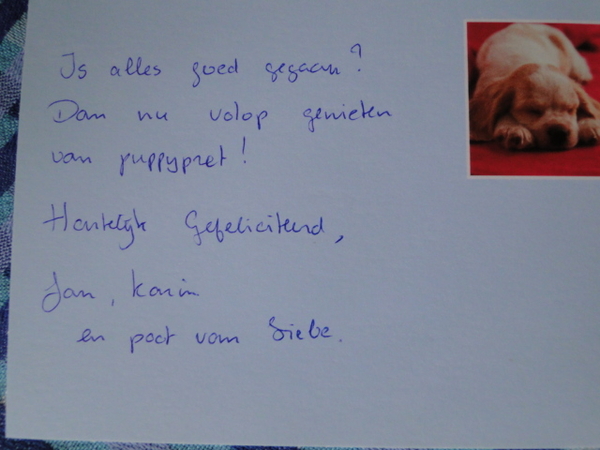 Is alles goed gegaan?
Dan nu volop genieten
van puppypret!
Hartelijk Gefeliciteerd,
Jan, Karin
en poot van Siebe.